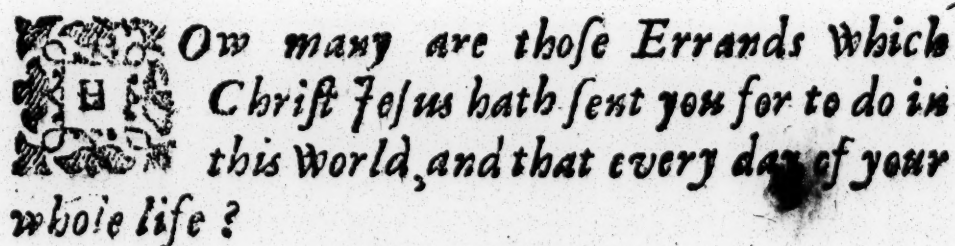 HOw many are thoſe Errands Which
Chriſt Jeſus hath ſent you for to do in
this World, and that every day of your
whole life ?